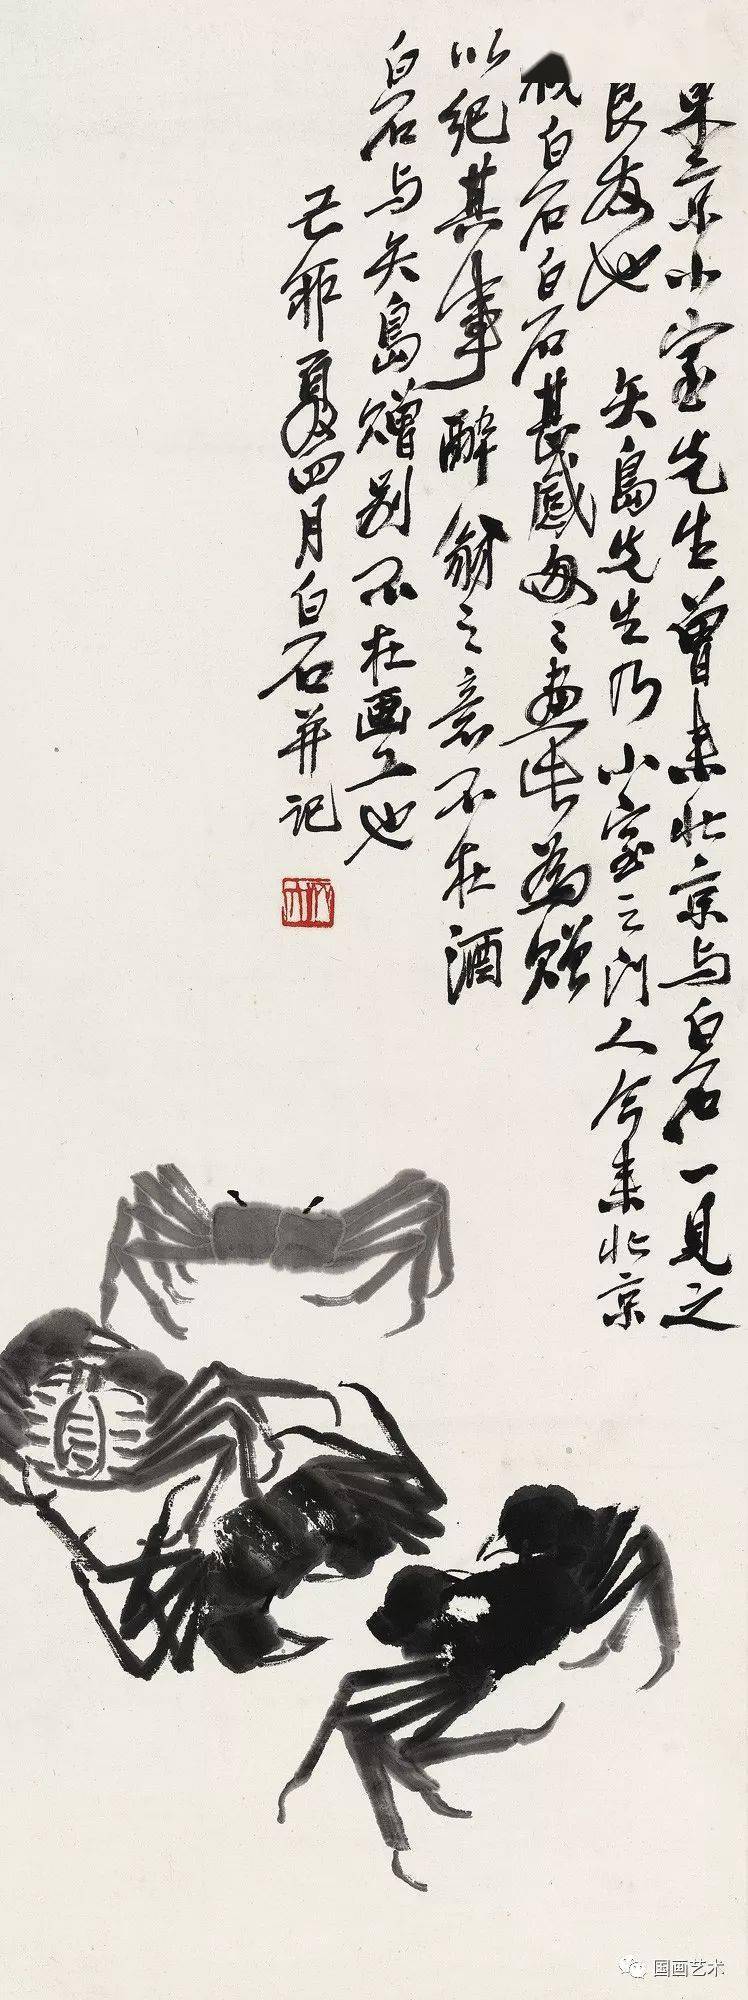 京小室先生曾来北京与白石一見之
良友也 矢島先生乃小室之门人今来北京
白石白石甚感画此為贈
以纪其事醉翁之意不在酒
白石与矢島贈别不在画工也
己卯夏四月白石并记
国画艺术